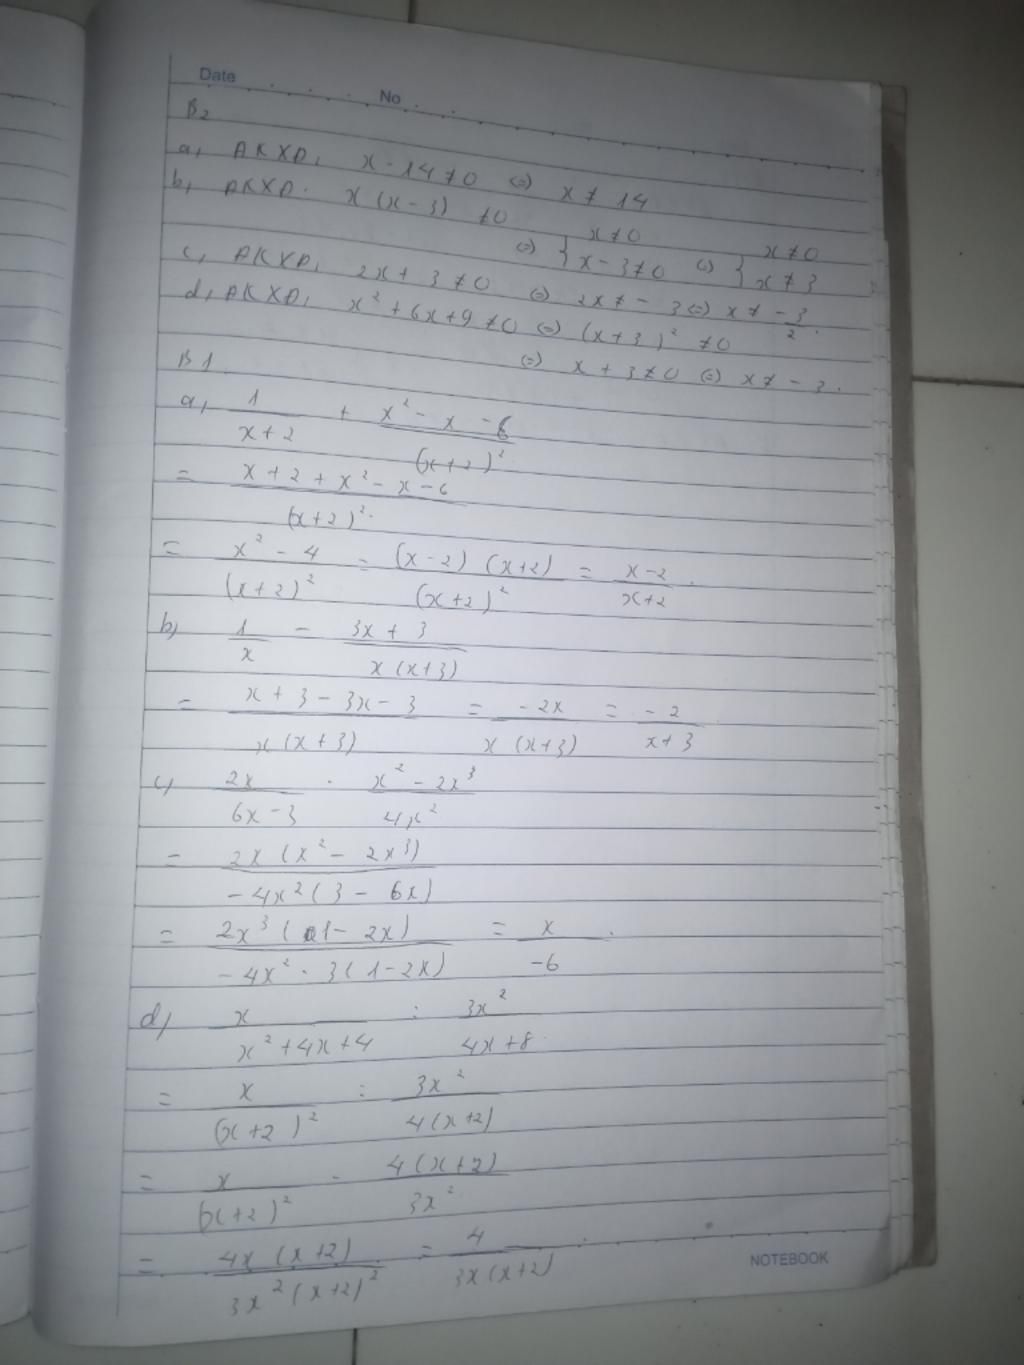 Date
No
B2
a, ĐKXĐ, x - 14 ≠ 0 (=) x ≠ 14
b, ĐKXĐ. x (x - 3) ≠ 0
(=) { x ≠ 0 x - 3 ≠ 0 (=) { x ≠ 0 x ≠ 3
c, ĐKXĐ, 2x + 3 ≠ 0 (=) 2x ≠ - 3 (=) x ≠ -3/2.
d, ĐKXĐ, x² + 6x + 9 ≠ 0 (=) (x + 3)² ≠ 0
(=) x + 3 ≠ 0 (=) x ≠ - 3.
B1
a, 1/(x + 2) + (x² - x - 6)/(x + 2)²
= (x + 2 + x² - x - 6)/(x + 2)²
= (x² - 4)/(x + 2)² = (x - 2) (x + 2)/(x + 2)² = (x - 2)/(x + 2).
b) 1/x - (3x + 3)/x (x + 3)
= (x + 3 - 3x - 3)/x (x + 3) = -2x/x (x + 3) = -2/(x + 3)
c) 2x/(6x - 3) . (x² - 2x³)/4x²
= 2x (x² - 2x³)/-4x² (3 - 6x)
= 2x³ (1 - 2x)/-4x² . 3 (1 - 2x) = x/-6.
d) x/(x² + 4x + 4) : 3x²/(4x + 8)
= x/(x + 2)² : 3x²/4 (x + 2)
= x/(x + 2)² . 4 (x + 2)/3x²
= 4x (x + 2)/3x² (x + 2)² = 4/3x (x + 2).
NOTEBOOK